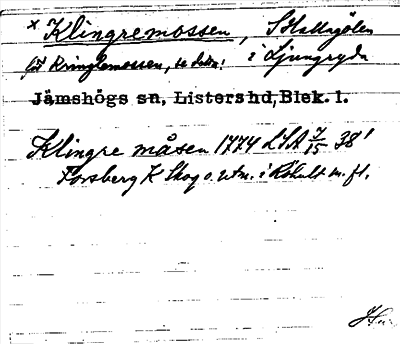 x Klingremossen, St Hallagölen
Kringlemossen, se detta! i Ljungryda
Jämshögs sn, Listers hd, Blek. l.
Klingre måsen 1774 LSA 7/15 38'
Forsberg K Skog o. utm. i Röhult m. fl.